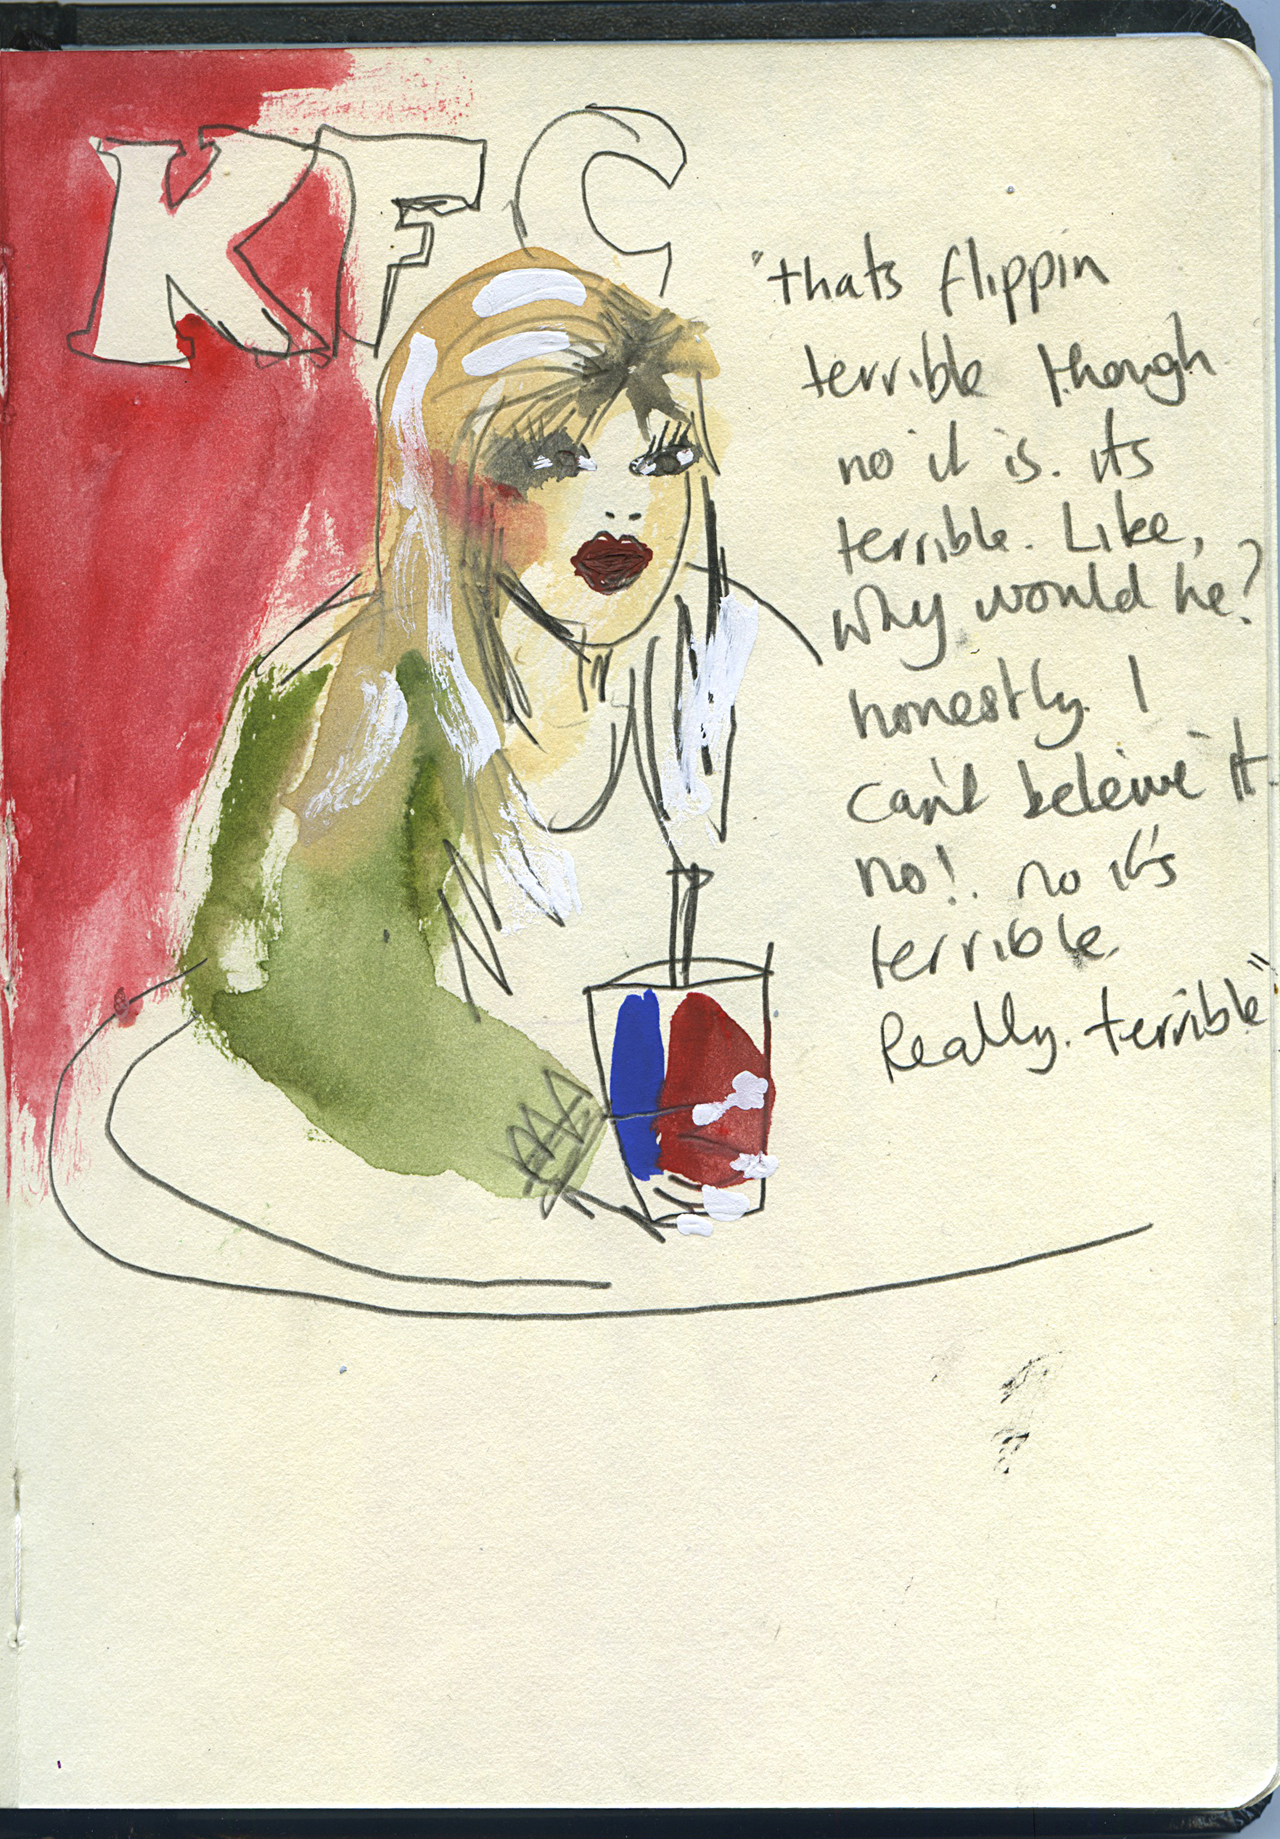 KFC
"thats flippin
terrible though
no it is. its
terrible. Like,
why would he?
honestly. I
can't beleive it.
no! no it's
terrible.
Really. terrible"